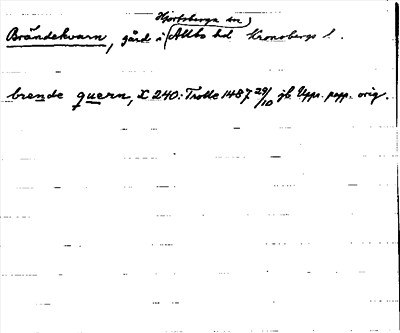 Hjortsberga sn
Brändekvarn, gård i Allbo hd Kronobergs l.
brende quern, X 240: Trolle 1487 29/10 jb. Upps. papp. orig.